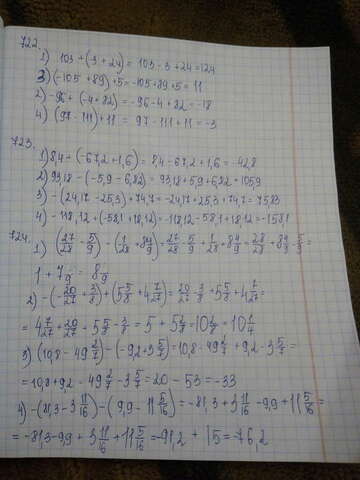 722.
1) 103 + (-3 + 24) = 103 - 3 + 24 = 124
3) (-105 + 89) + 5 = -105 + 89 + 5 = 11
2) -96 + (-4 + 82) = -96 - 4 + 82 = -18
4) (97 - 111) + 11 = 97 - 111 + 11 = -3
723.
1) 8,4 + (-67,2 + 1,6) = 8,4 - 67,2 + 1,6 = -42,8
2) 93,18 - (-5,9 - 6,82) = 93,18 + 5,9 + 6,82 = 105,9
3) -(24,17 - 25,3) + 74,7 = -24,17 + 25,3 + 74,7 = 75,83
4) -118,12 + (-58,1 + 18,12) = -118,12 - 58,1 + 18,12 = -158,1
724.
1) (27/28 - 5/9) - (-1/28 + 8 4/9) = 27/28 - 5/9 + 1/28 + 8 4/9 = 28/28 + 8 4/9 - 5/9 =
1 + 7 /9 = 8 8/9
2) -(-20/27 + 3/8) + (5 5/8 + 4 7/27) = 20/27 - 3/8 + 5 5/8 + 4 7/27 =
= 4 7/27 + 20/27 + 5 5/8 - 3/8 = 5 + 5 2/8 = 10 2/8 = 10 1/4
3) (10,8 - 49 2/7) - (-9,2 + 3 5/7) = 10,8 - 49 2/7 + 9,2 - 3 5/7 =
= 10,8 + 9,2 - 49 2/7 - 3 5/7 = 20 - 53 = -33
4) -(81,3 - 3 11/16) - (9,9 - 11 5/16) = -81,3 + 3 11/16 - 9,9 + 11 5/16 =
= -81,3 - 9,9 + 3 11/16 + 11 5/16 = -91,2 + 15 = -76,2